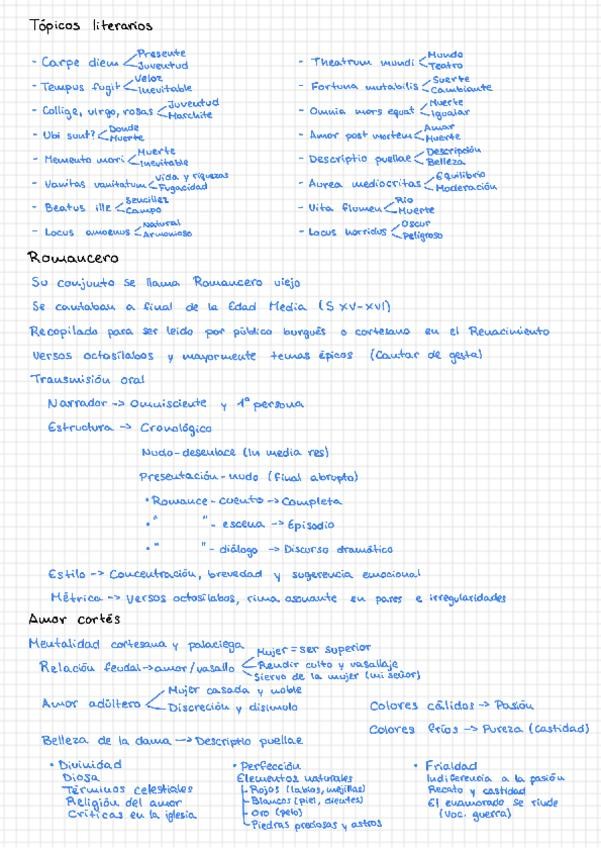 Tópicos literarios
- Carpe diem < Presente
Juventud
- Tempus fugit < Veloz
Inevitable
- Collige, virgo, rosas < Juventud
Marchite
- Ubi sunt? < Donde
Muerte
- Memento mori < Muerte
Inevitable
- Vanitas vanitatum < Vida y riquezas
Fugacidad
- Beatus ille < Sencillez
Campo
- Locus amoenus < Natural
Armonioso
- Theatrum mundi < Mundo
Teatro
- Fortuna mutabilis < Suerte
Cambiante
- Omnia mors equat < Muerte
Igualar
- Amor post mortem < Amar
Muerte
- Descriptio puellae < Descripción
Belleza
- Aurea mediocritas < Equilibrio
Moderación
- Vita flumen < Rio
Muerte
- Locus horridus < Oscur
Peligroso
Romancero
Su conjunto se llama Romancero viejo
Se cantaban a final de la Edad Media (S XV-XVI)
Recopilado para ser leido por público burgués o cortesano en el Renacimiento
Versos octosílabos y mayormente temas épicos (Cantar de gesta)
Transmisión oral
Narrador -> Omnisciente y 1ª persona
Estructura -> Cronológico
Nudo-desenlace (In media res)
Presentación-nudo (final abrupto)
• Romance - cuento -> Completa
• " " - escena -> Episodio
• " " - diálogo -> Discurso dramático
Estilo -> Concentración, brevedad y sugerencia emocional
Métrica -> Versos octosílabos, rima asonante en pares e irregularidades
Amor cortés
Mentalidad cortesana y palaciega
Relación feudal -> amor/vasallo < Mujer = ser superior
Rendir culto y vasallaje
Siervo de la mujer (mi señor)
Amor adúltero < Mujer casada y noble
Discreción y disimulo
Colores cálidos -> Pasión
Colores fríos -> Pureza (castidad)
Belleza de la dama -> Descriptio puellae
• Divinidad
Diosa
Términos celestiales
Religión del amor
Críticas en la iglesia
• Perfección
Elementos naturales
- Rojos (labios, mejillas)
- Blancos (piel, dientes)
- Oro (pelo)
- Piedras preciosas y astros
• Frialdad
Indiferencia a la pasión
Recato y castidad
El enamorado se rinde
(Voc. guerra)